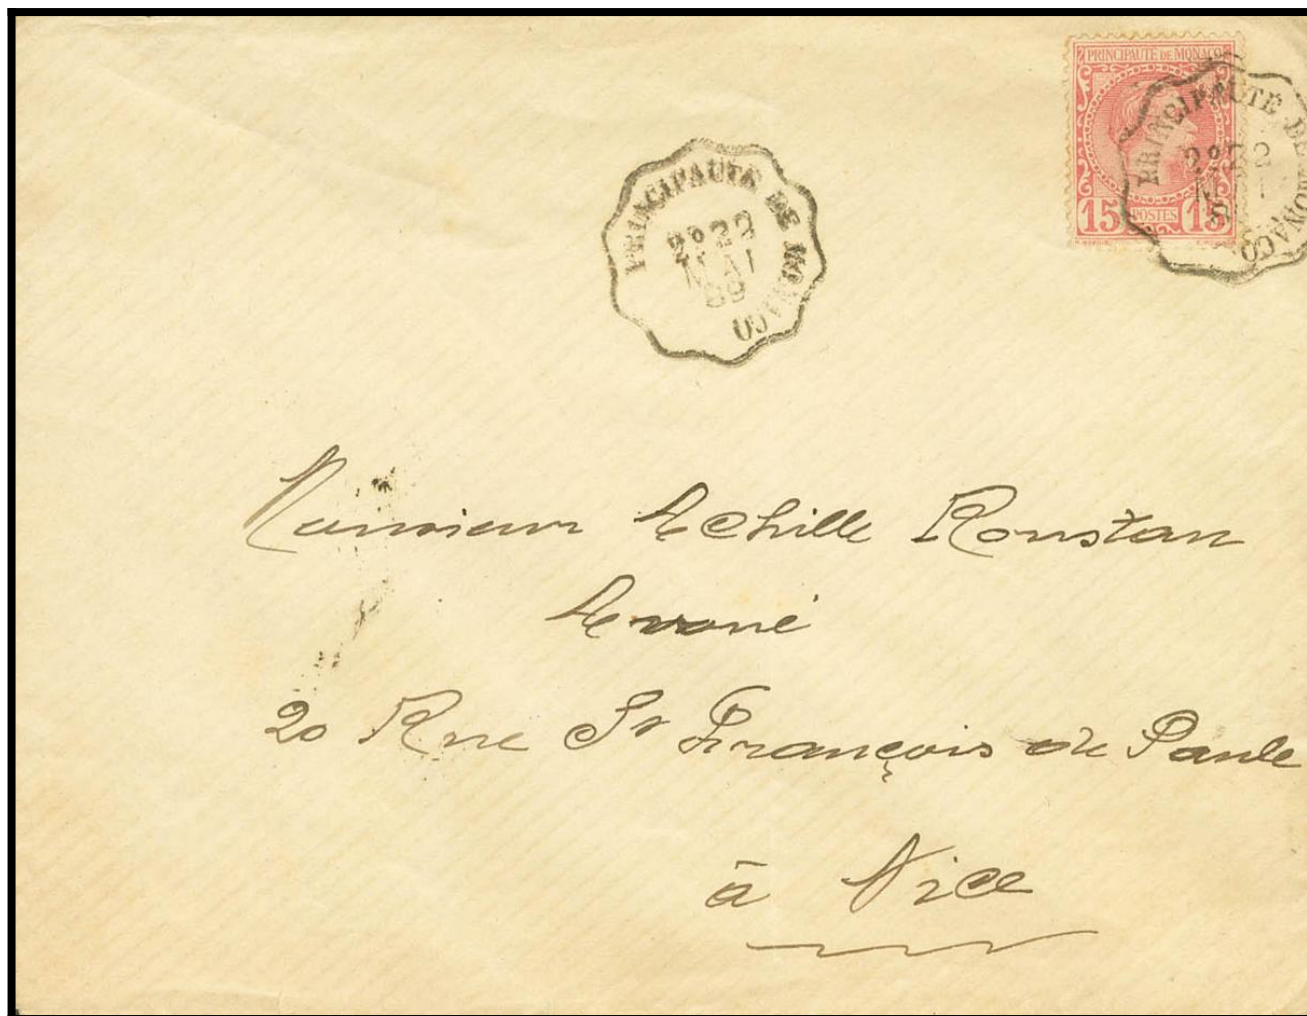 PRINCIPAUTE DE MONACO
15 POSTES 15
PRINCIPAUTÉ DE MONACO
PRINCIPAUTÉ DE MONACO
2º 22
MAI
89
Monsieur Achille Roustan
Avoué
20 Rue St François de Paule
à Nice